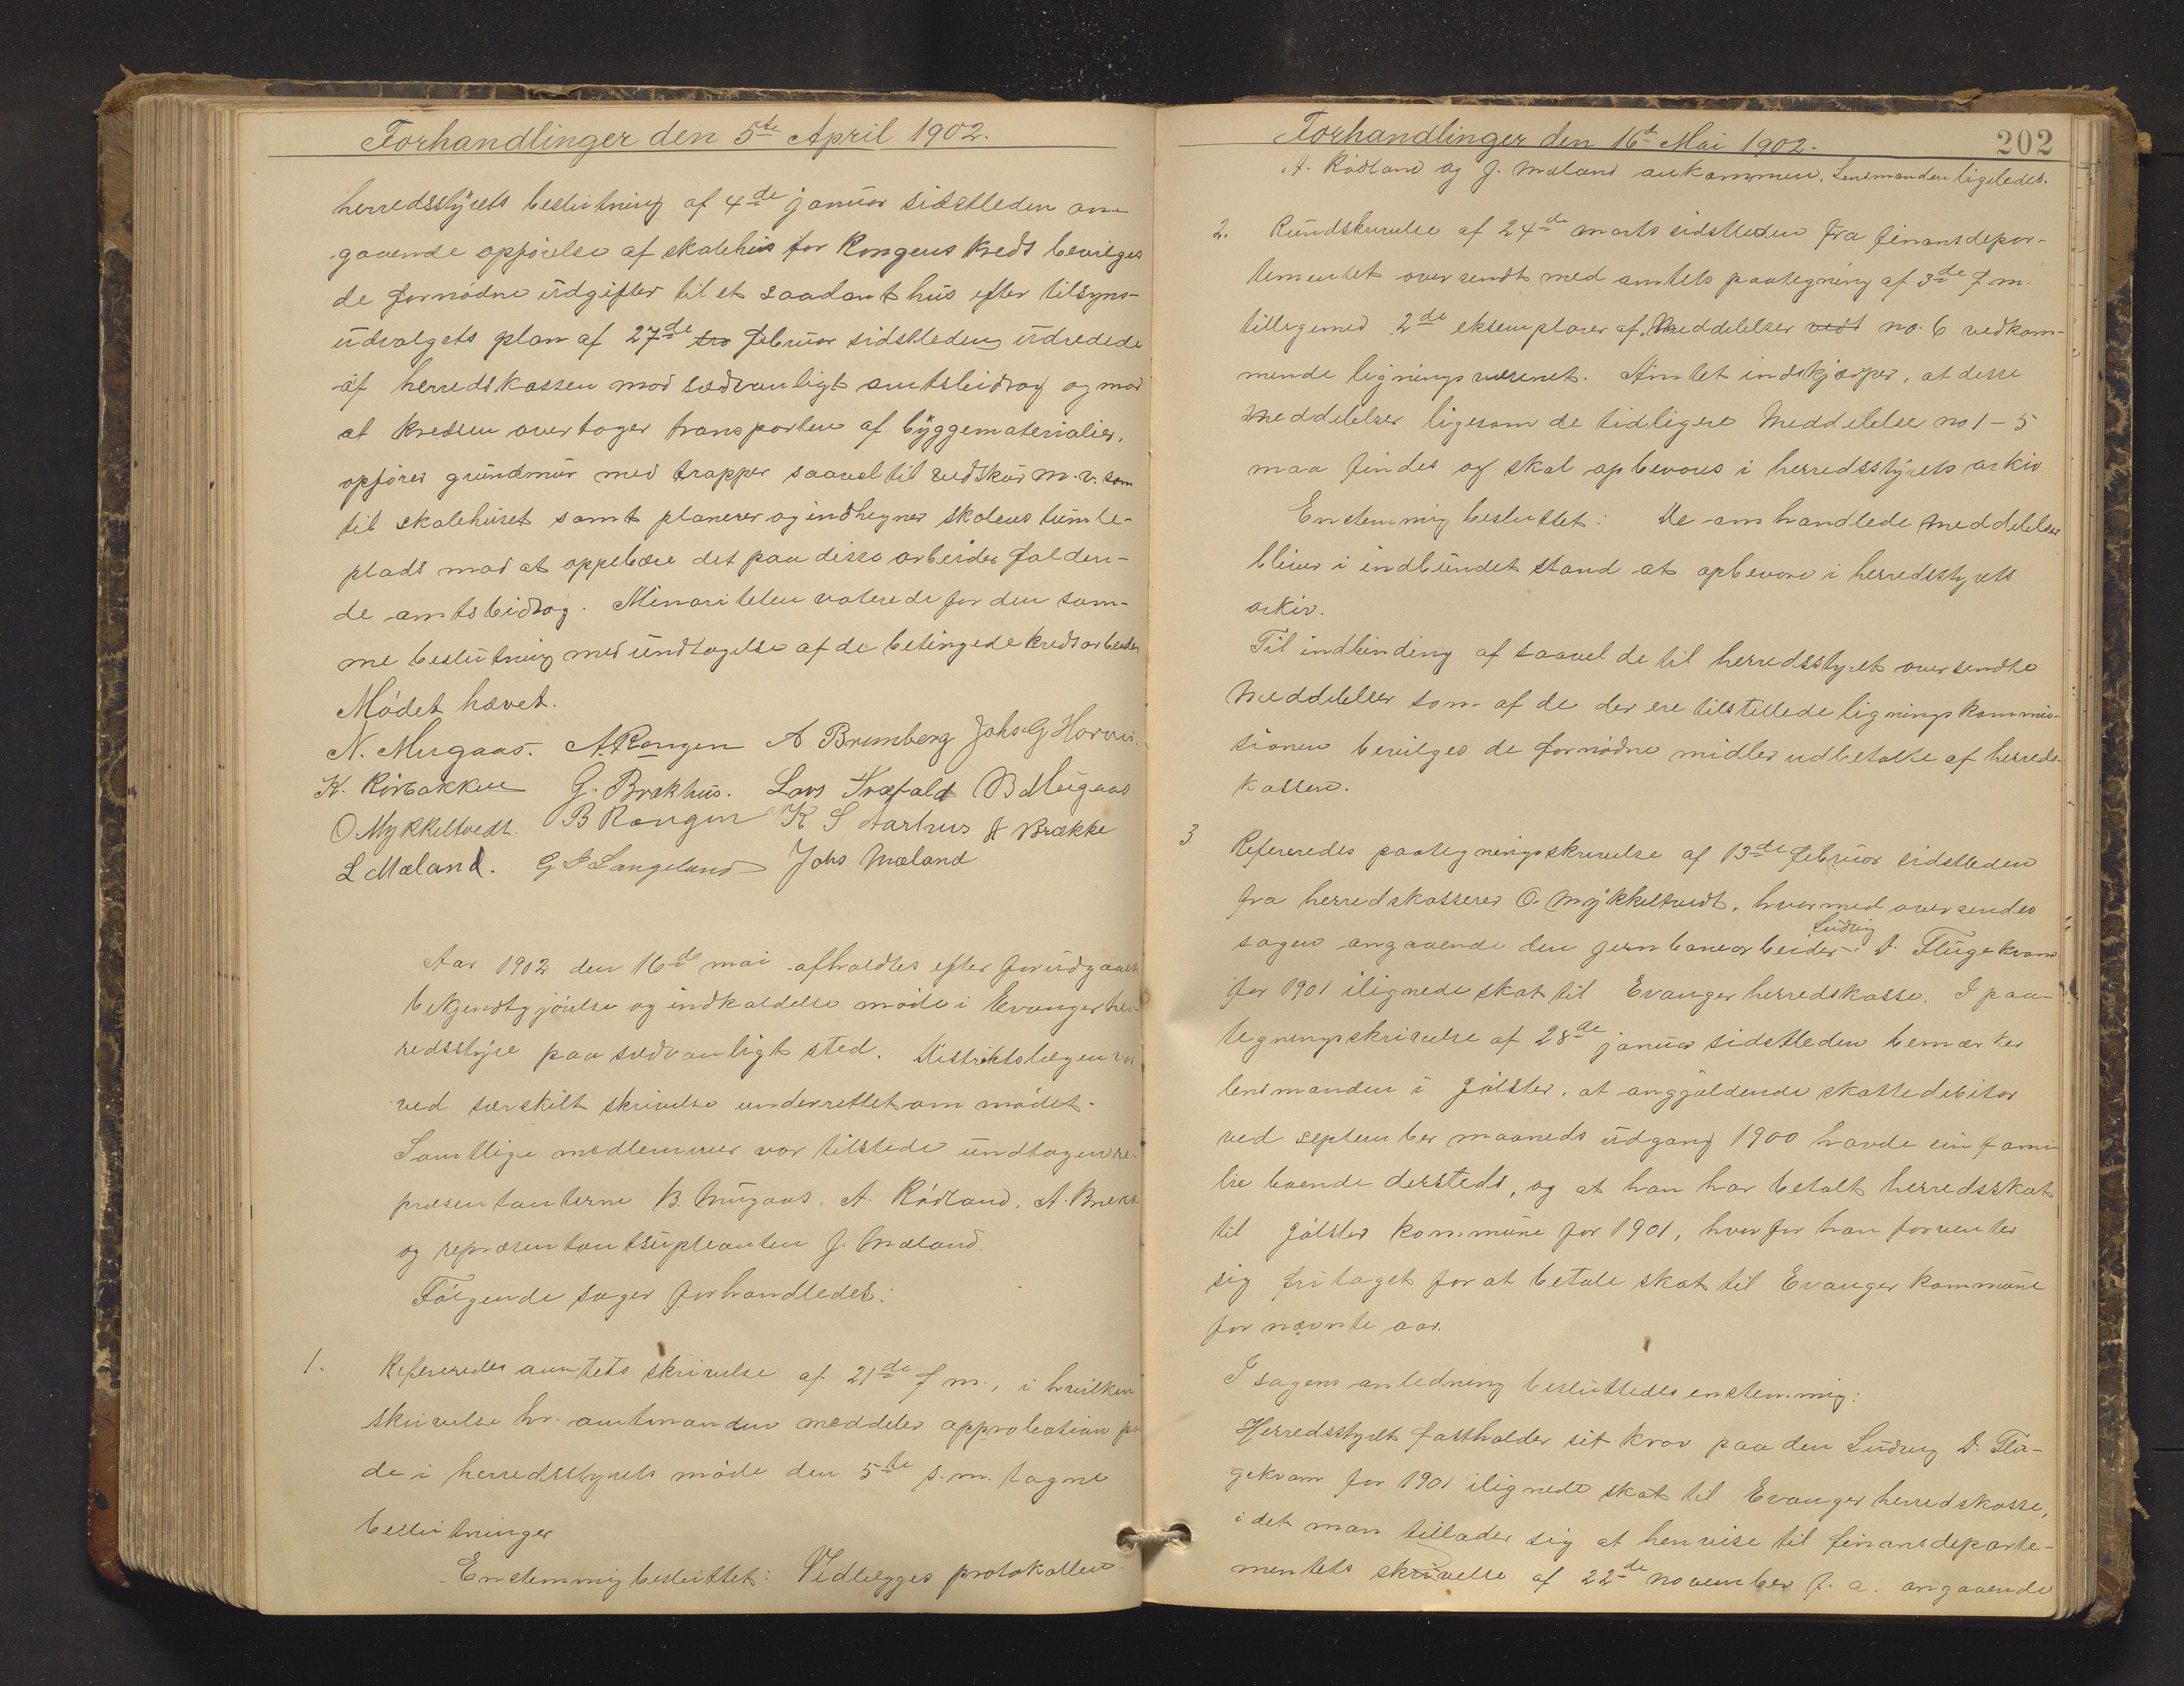 Forhandlinger den 5te April 1902.
herredsstyrets beslutning af 4de januar sidstleden an-
gaaende opførelse af skolehus for Rongens kreds bevilges
de fornødne udgifter til et saadant hus efter tilsyns-
udvalgets plan af 27de februar sidstleden udredede
af herredskassen mod sædvanligt amtsbidrag og mod
at kredsen overtager transporten af byggematerialier,
opfører grundmur med trapper saavel til vedskur m.v. som
til skolehuset samt planerer og indhegner skolens tumle-
plads mod at oppebære det paa disse arbeider falden-
de amtsbidrag. Minoriteten voterede for den sam-
me beslutning med undtagelse af de betingede kredsarbeider
Mødet hævet.
N. Mugaas. A Rongen A Brunborg Johs. G Horvei.
K. Rørbakken G. Brækhus. Lars Træfald B Mugaas
O Mykkeltvedt. B Rongen K S Aarhus A Brække
L Mæland. G J Langeland Johs Mæland
Aar 1902 den 16de mai afholdtes efter forudgaaet
bekjendtgjørelse og indkaldelse møde i Evanger her-
redsstyre paa sædvanligt sted. Distriktslægen var
ved særskilt skrivelse underrettet om mødet.
Samtlige medlemmer var tilstede undtagen re-
præsentanterne B. Mugaas, A. Rødland, A. Brække
og repræsentantsupleanten J. Mæland.
Følgende sager forhandledes:
1. Refereredes amtets skrivelse af 21de f m., i hvilken
skrivelse hr. amtmanden meddeler approbation på
de i herredsstyrets møde den 5te s.m. tagne
beslutninger
Enstemmig besluttet: Vedlægges protokollen.
Forhandlinger den 16de Mai 1902. 202
A. Rødland og J. Mæland ankommen. Lensmanden ligeledes.
2. Rundskrivelse af 24de marts sidstleden fra finansdepar-
tementet oversendt med amtets paategning af 3de f m.
tilligemed 2de eksemplarer af Meddelelser vedt no. 6 vedkom-
mende ligningsvæsenet. Amtet indskjærper, at disse
Meddelelser ligesom de tidligere Meddelelse no 1 - 5
maa findes og skal opbevares i herredsstyrets arkiv
Enstemmig besluttet: De omhandlede meddelelser
bliver i indbundet stand at opbevare i herredsstyrets
arkiv.
Til indbinding af saavel de til herredsstyret oversendte
Meddelelser som af de der ere tilstillede ligningskommis-
sionen bevilges de fornødne midler udbetalte af herreds-
kassen.
3 Refereredes paategningsskrivelse af 13de februar sidstleden
fra herredskasserer O. Mykkeltvedt, hvormed oversendes
sagen angaaende den jernbanearbeider Ludvig D. Flugekvam
for 1901 ilignede skat til Evanger herredskasse. I paa-
tegningsskrivelse af 28de januar sidstleden bemærker
lensmanden i Jølster, at anggjældende skattedebitor
ved september maaneds udgang 1900 havde sin fami-
lie boende dersteds, og at han har betalt herredsskat
til Jølster kommune for 1901, hvorfor han forventer
sig fritaget for at betale skat til Evanger kommune
for nævnte aar.
I sagens anledning besluttedes enstemmig:
Herredsstyret fastholder sit krav paa den Ludvig D. Flu-
gekvam for 1901 ilignede skat til Evanger herredskasse,
i det man tillader sig at henvise til finansdeparte-
mentets skrivelse af 22de november f. a. angaaende